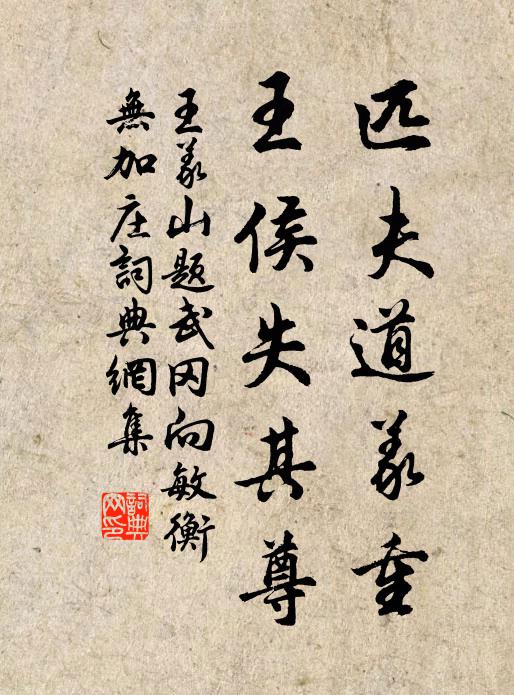 匹夫道義重
王侯失其尊
王義山題武冈向敏衡
無加庄詞典網集
詞典網印